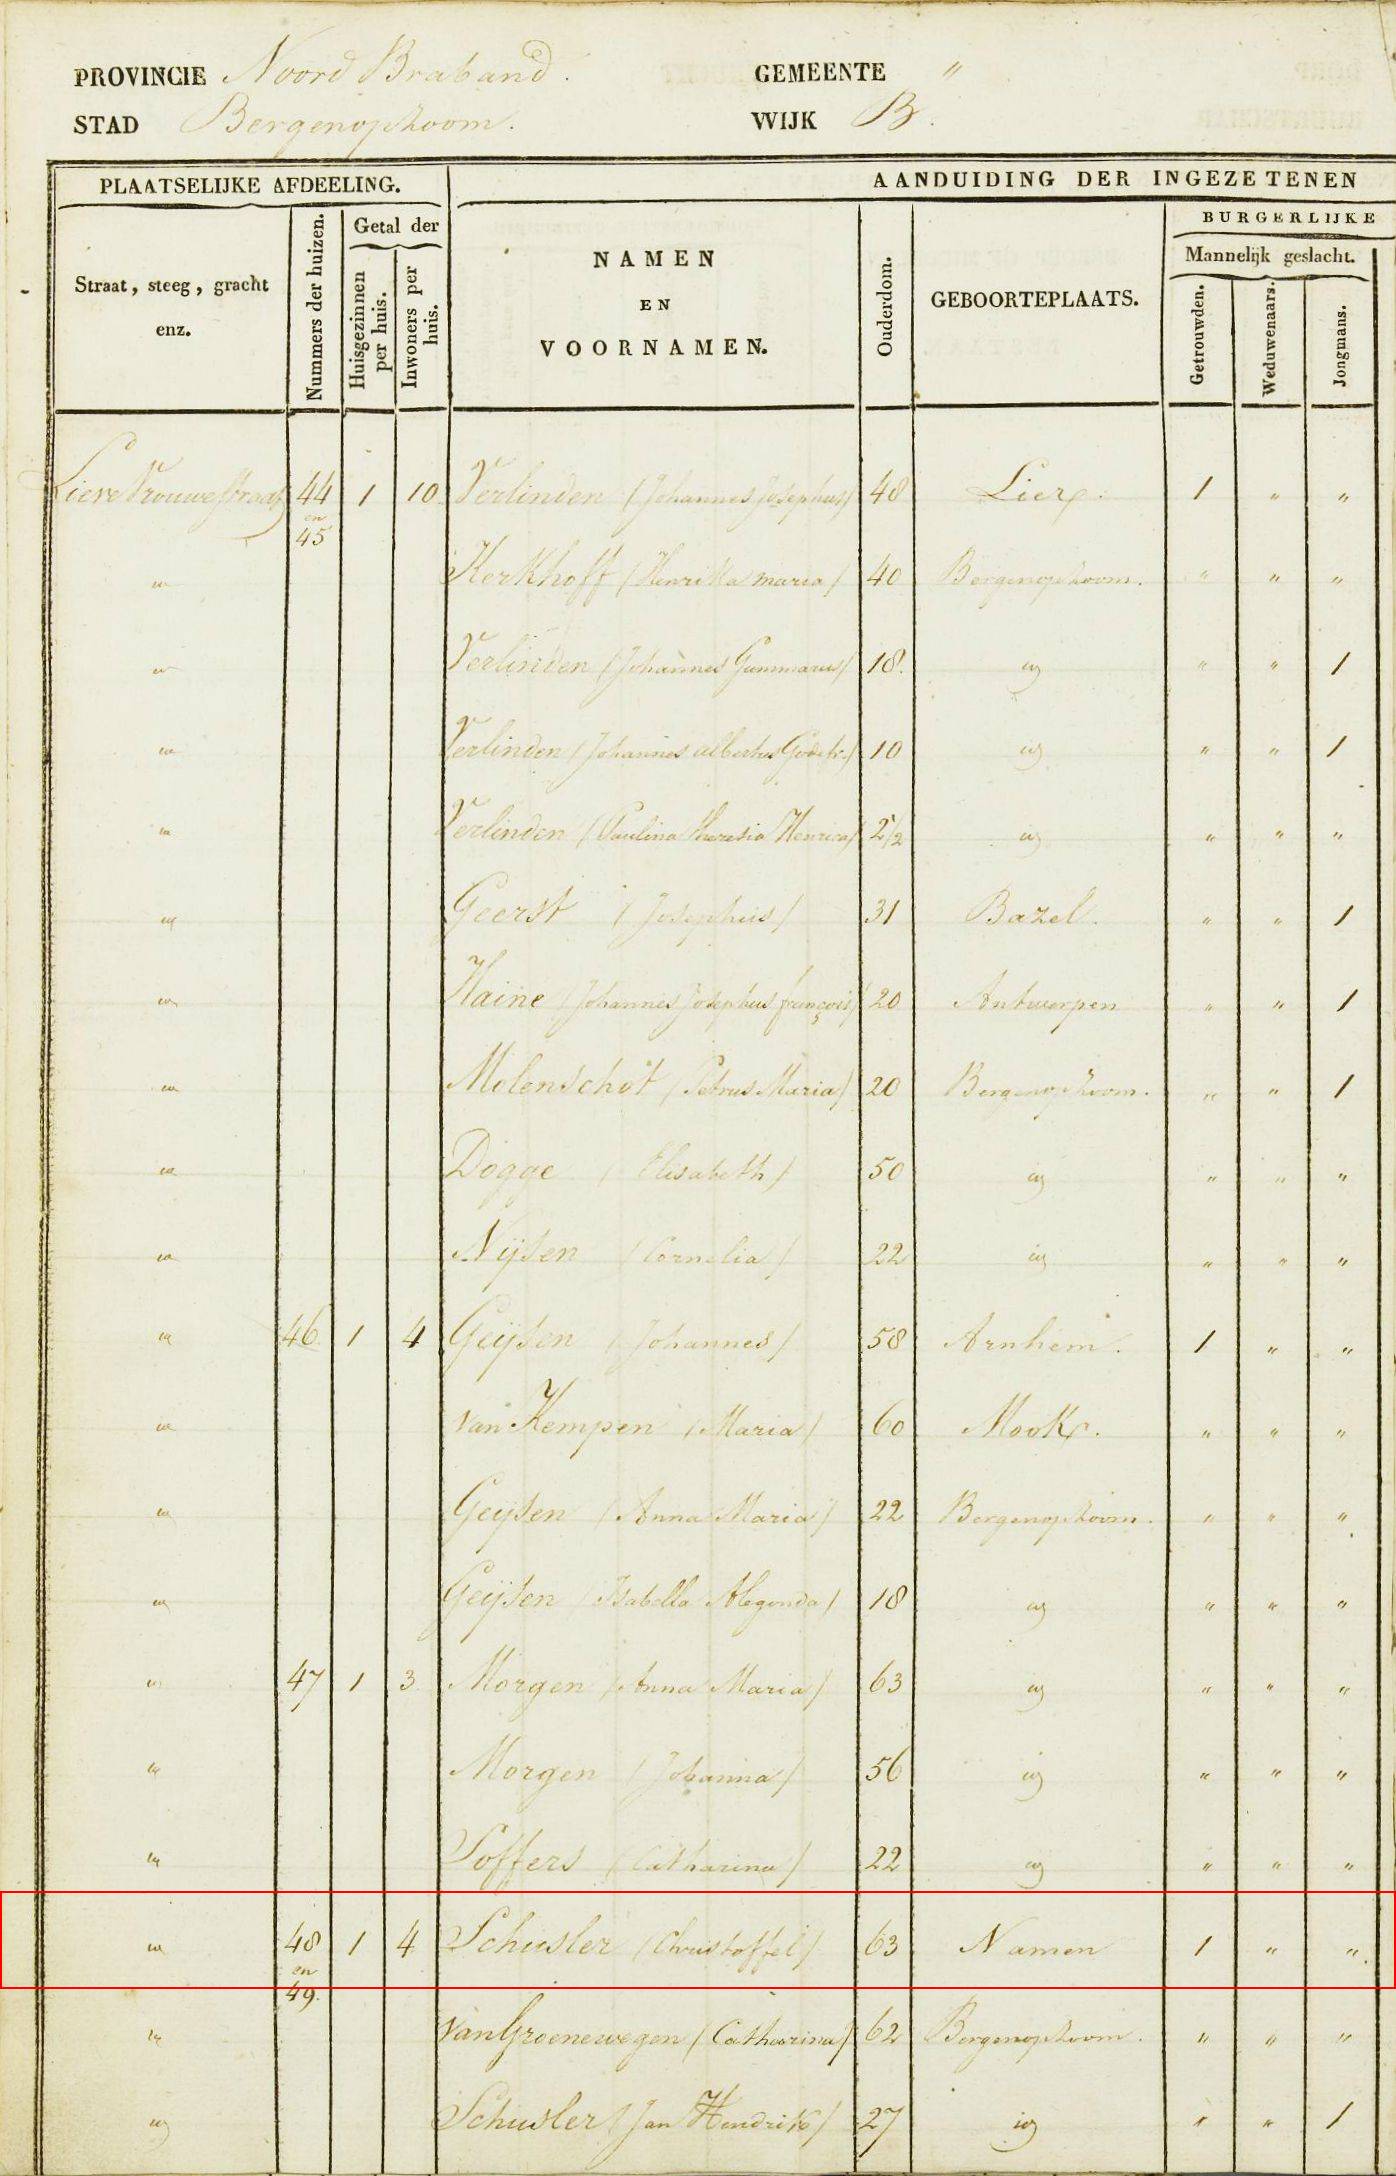 PROVINCIE Noord Braband. GEMEENTE "
STAD Bergenopzoom. WIJK B.
PLAATSELIJKE AFDEELING. AANDUIDING DER INGEZETENEN
Straat, steeg, gracht enz. Nummers der huizen. Getal der Huisgezinnen per huis. Inwoners per huis. NAMEN EN VOORNAMEN. Ouderdom. GEBOORTEPLAATS. BURGERLIJKE Mannelijk geslacht. Getrouwden. Weduwenaars. Jongmans.
Lieve Vrouwe straat 44 en 45 1 10 Verlinden (Johannes Josephus) 48 Lier. 1 " "
" Kerkhoff (Henrika maria) 40 Bergenopzoom. " " "
" Verlinden (Johannes Gummarus) 18. " " " 1
" Verlinden (Johannes albertus Godefr.) 10 " " " 1
" Verlinden (Paulina theresia Henrica) 2 1/2 " " " "
" Geerst (Josephus) 31 Bazel. " " 1
" Haine (Johannes Josephus françois) 20 Antwerpen " " 1
" Molenschot (Petrus Maria) 20 Bergenopzoom. " " 1
" Dogge (Elisabeth) 50 " " " "
" Nijsen (Cornelia) 22 " " " "
" 46. 1 4 Geijsen (Johannes) 58 Arnhem. 1 " "
" van Kempen (Maria) 60 Mook. " " "
" Geijsen (Anna Maria) 22 Bergenopzoom. " " "
" Geijsen (Isabella Alegonda) 18 " " " "
" 47 1 3 Morgen (Anna Maria) 63 " " " "
" Morgen (Johanna) 56 " " " "
" Soffers (Catharina) 22 " " " "
" 48 en 49. 1 4 Schusler (Christoffel) 63 Namen 1 " "
" van Groenewegen (Catharina) 62 Bergenopzoom. " " "
" Schusler (Jan Hendrik) 27 " " " 1